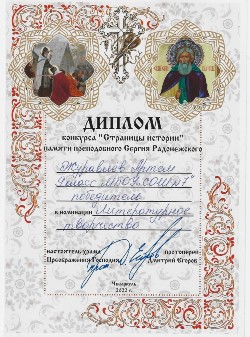 ДИПЛОМ
конкурса "Страницы истории"
памяти преподобного Сергия Радонежского
Журавлев Артем
класс МБОУ СОШ №7
победитель
в номинации Литературное
творчество
настоятель храма протоиерей
Преображения Господня Дмитрий Егоров
2022 г.